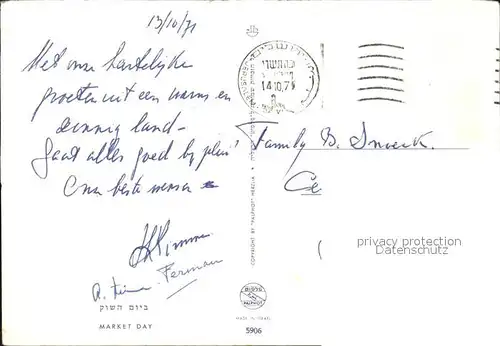 13/10/71
Met onze hartelijke
groeten uit een warm en
zonnig land -
Gaat alles goed bij jullie?
Onze beste wensen
14.10.71
Family B. Snoeck.
Ce
privacy protection
delcampe.net
Ferman
ביום השוק
MARKET DAY
COPYRIGHT BY "PALPHOT" HERZLIA
PALPHOT
MADE IN ISRAEL
5906